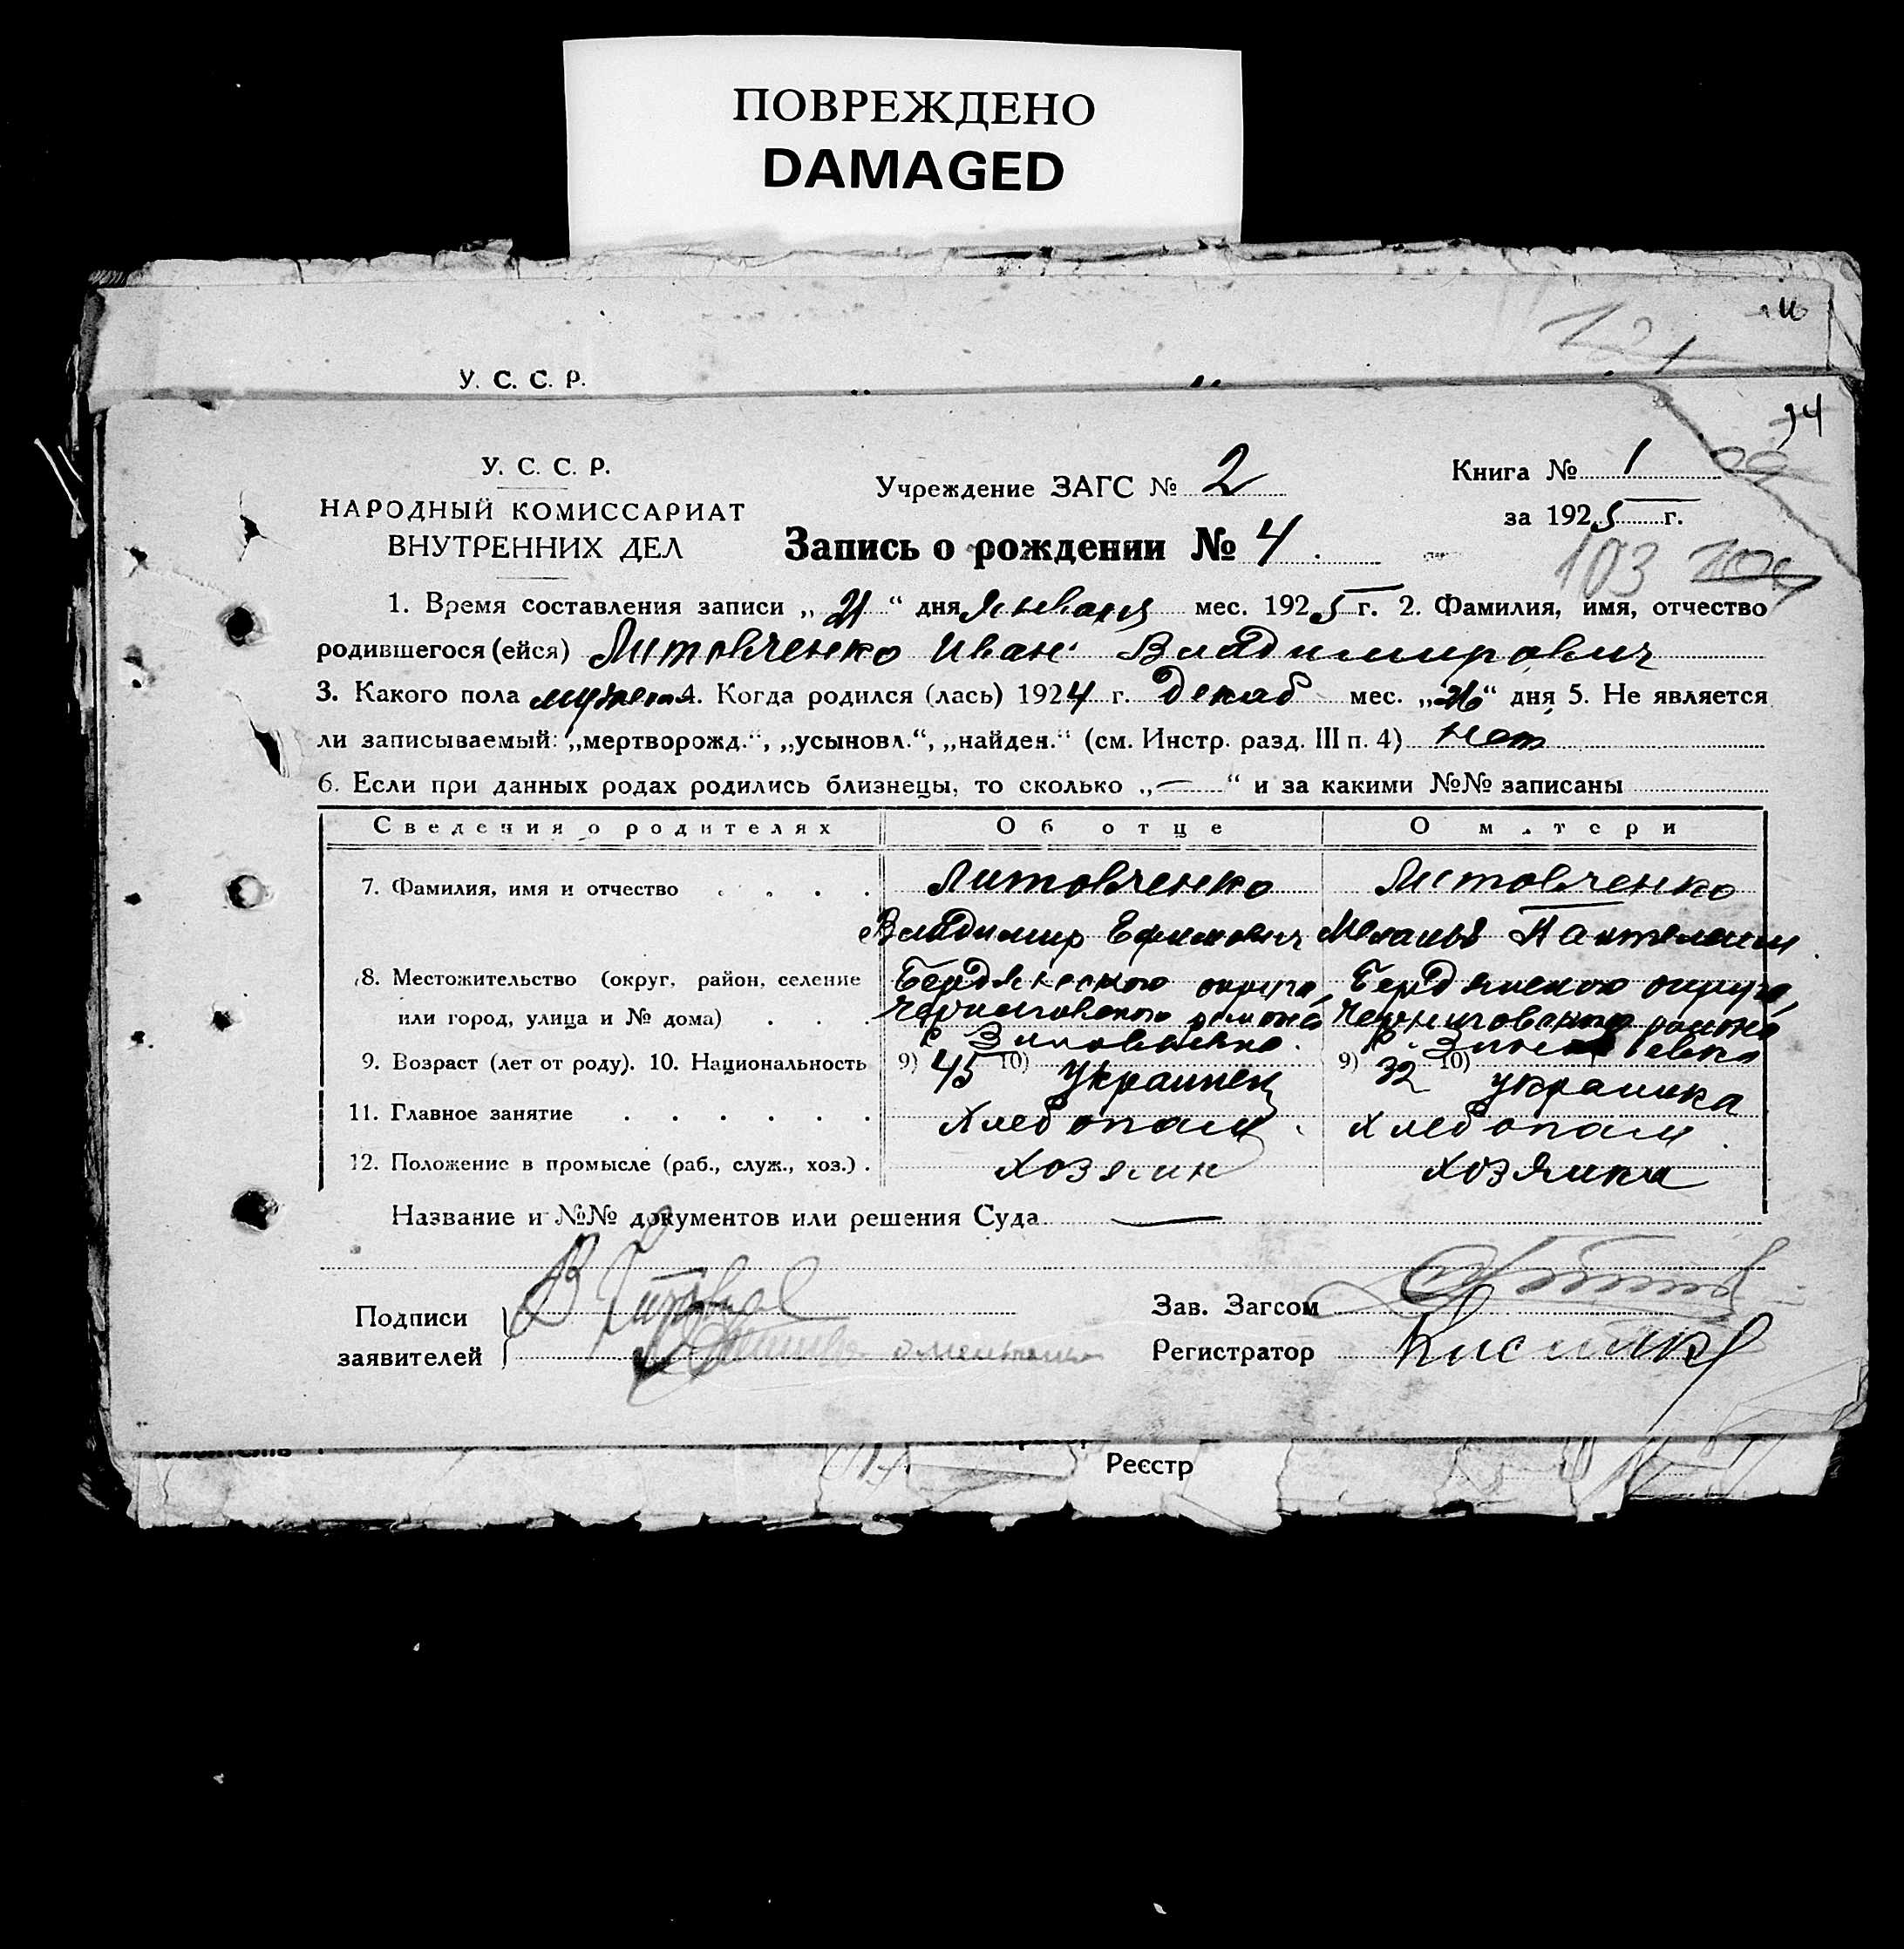 ПОВРЕЖДЕНО
DAMAGED
У. С. С. Р.
94
У. С. С. Р.
НАРОДНЫЙ КОМИССАРИАТ
ВНУТРЕННИХ ДЕЛ
Учреждение ЗАГС № 2
Книга № 1
за 1925 г.
Запись о рождении № 4
103
1. Время составления записи „21“ дня Января мес. 1925 г. 2. Фамилия, имя, отчество
родившегося (ейся) Литовченко Иван Владимирович
3. Какого пола мужск 4. Когда родился (лась) 1924 г. Декаб мес. „26“ дня 5. Не является
ли записываемый: „мертворожд.“, „усыновл.“, „найден.“ (см. Инстр. разд. III п. 4) нет
6. Если при данных родах родились близнецы, то сколько „—“ и за какими №№ записаны
Сведения о родителях Об отце О матери
7. Фамилия, имя и отчество Литовченко Литовченко
Владимир Ефимович Меланья
8. Местожительство (округ, район, селение Бердянского округа, Бердянского округа,
или город, улица и № дома) Черниговского района Черниговского района
с
9. Возраст (лет от роду). 10. Национальность 9) 45 10) Украинец 9) 32 10) украинка
11. Главное занятие Хлебопаш Хлебопаш
12. Положение в промысле (раб., служ., хоз.) хозяин хозяйка
Название и №№ документов или решения Суда —
Подписи
заявителей
Зав. Загсом
Регистратор
Реєстр